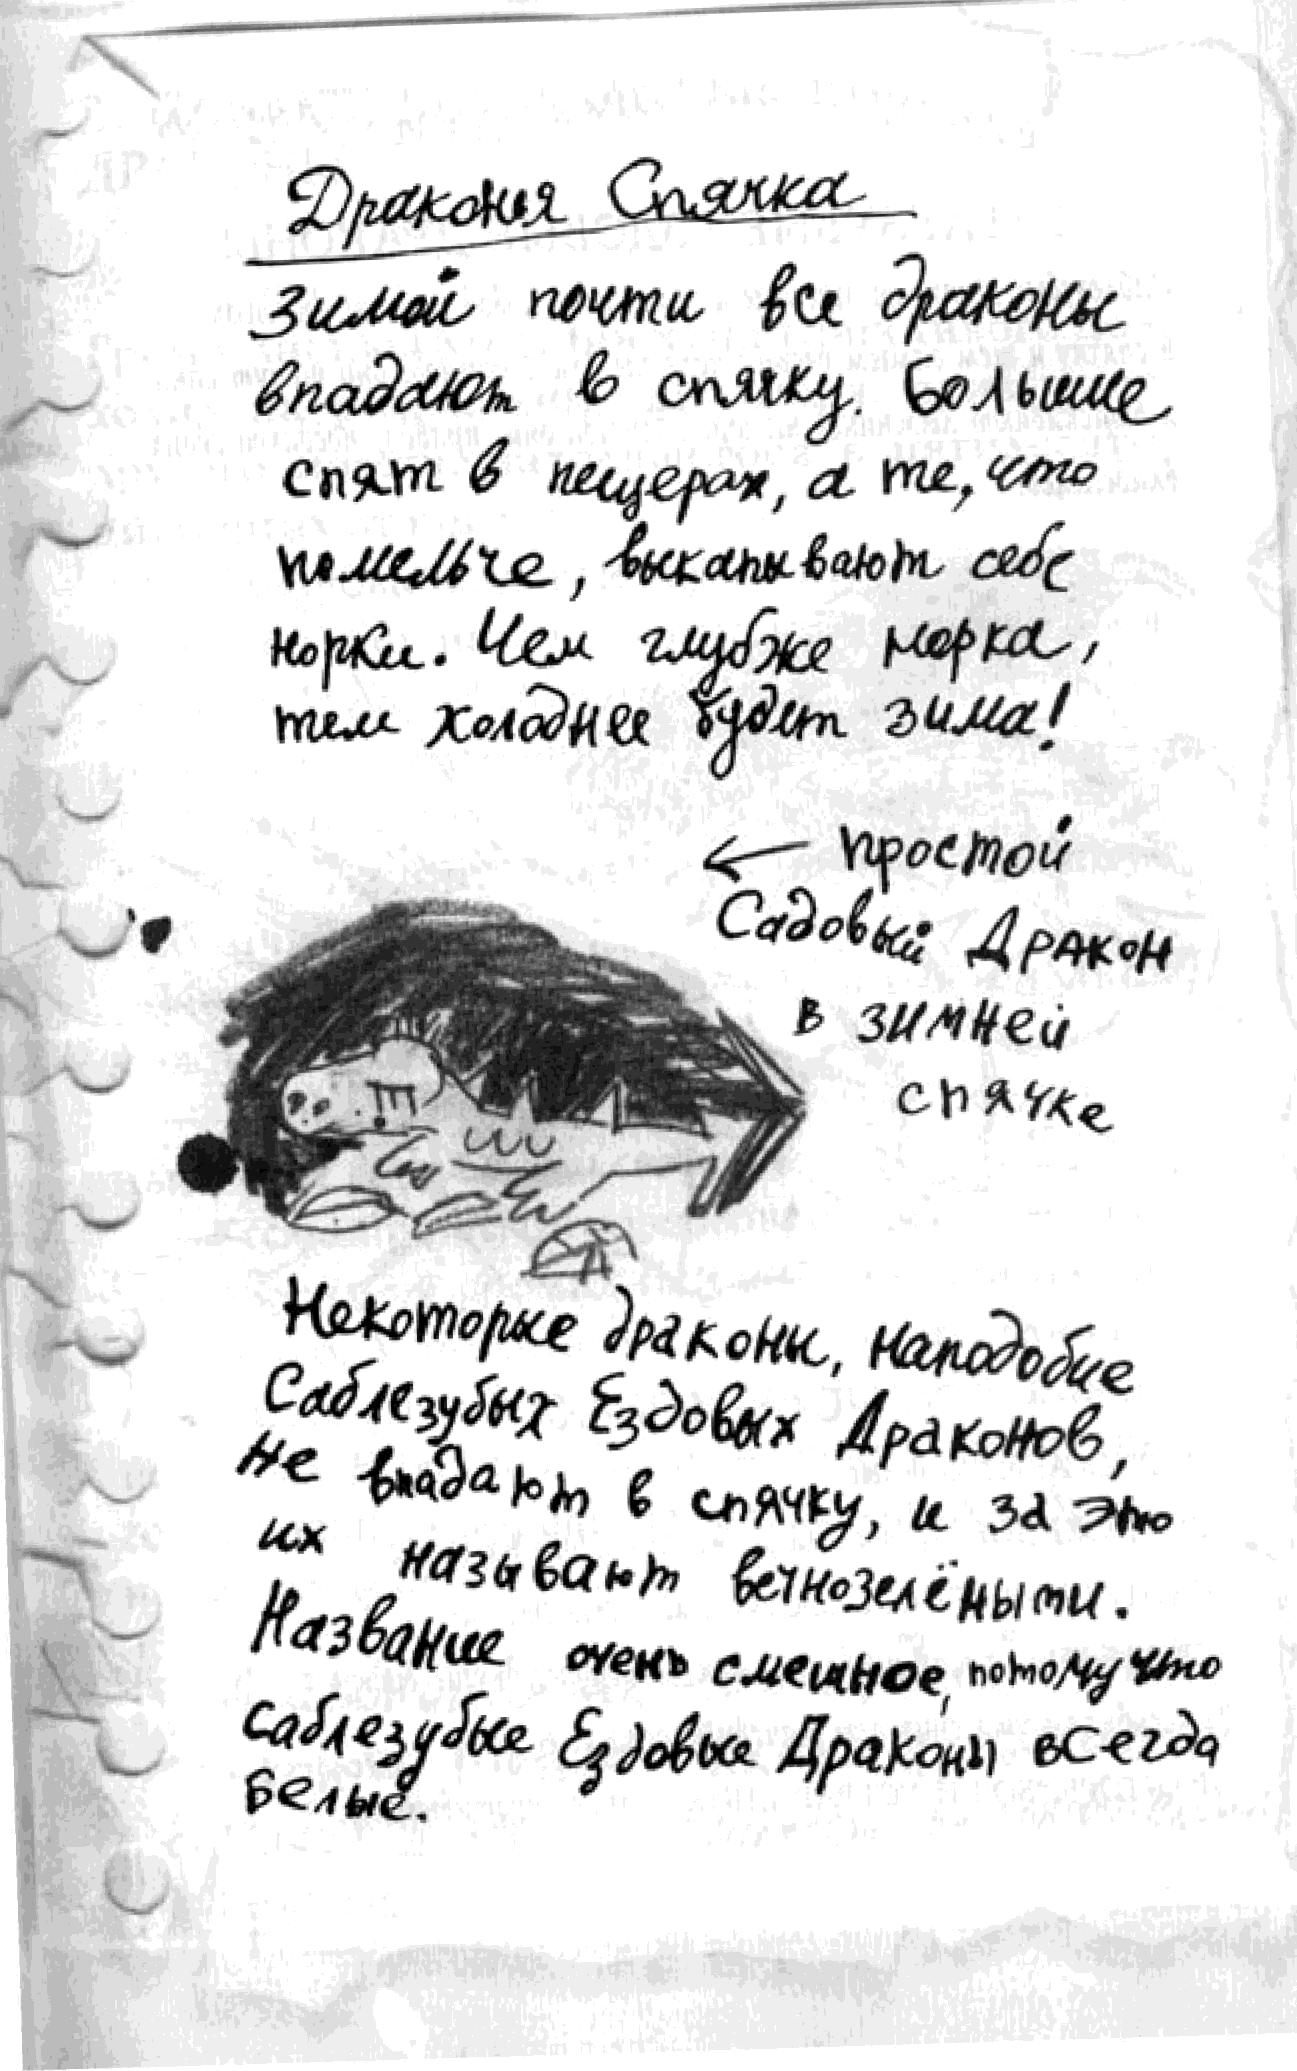 Драконья Спячка
Зимой почти все драконы
впадают в спячку. Большие
спят в пещерах, а те, что
помельче, выкапывают себе
норки. Чем глубже норка,
тем холоднее будет зима!
← простой
Садовый Дракон
в зимней
спячке
Некоторые драконы, наподобие
Саблезубых Ездовых Драконов,
не впадают в спячку, и за это
их называют вечнозелёными.
Название очень смешное, потому что
Саблезубые Ездовые Драконы всегда
белые.